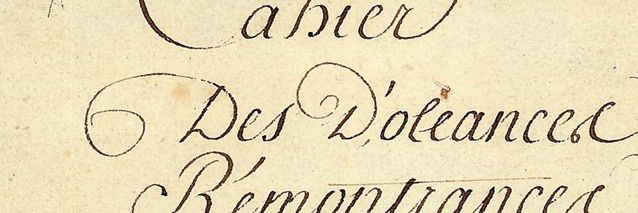 Cahier
Des D'oléances
Rémontrances